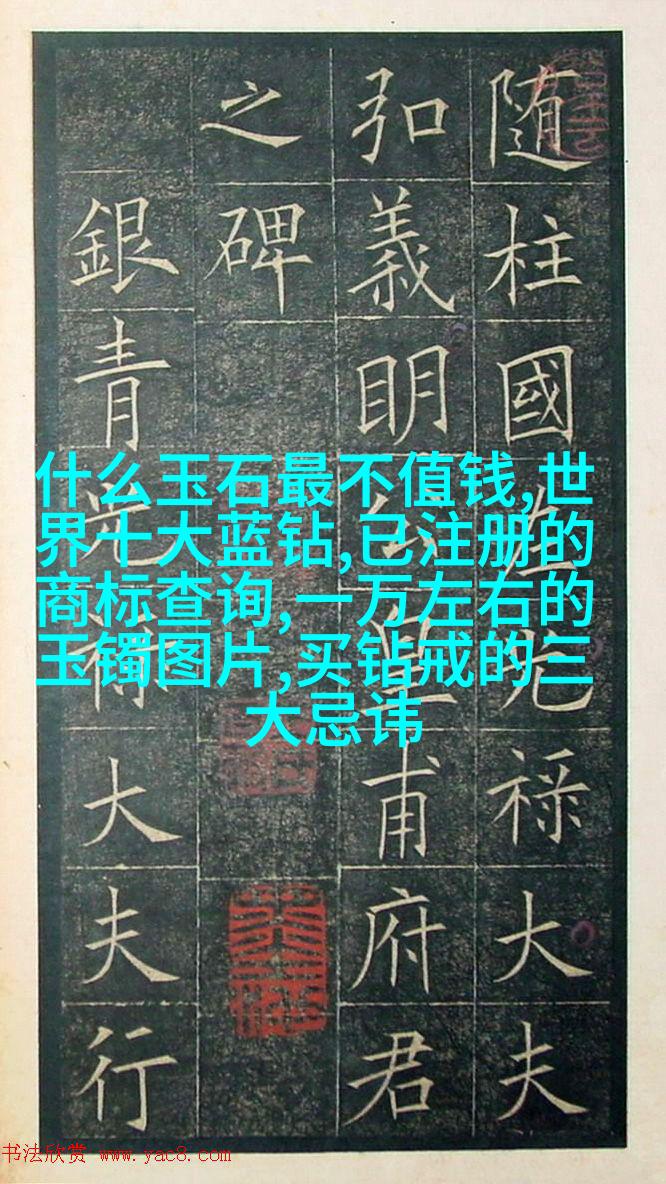 随柱國左光禄大夫
弘義明公皇甫府君
之碑
銀青光禄大夫行
什么玉石最不值钱,世
界十大蓝钻,已注册的
商标查询,一万左右的
玉镯图片,买钻戒的三
大忌讳
书法欣赏 www.yac8.com